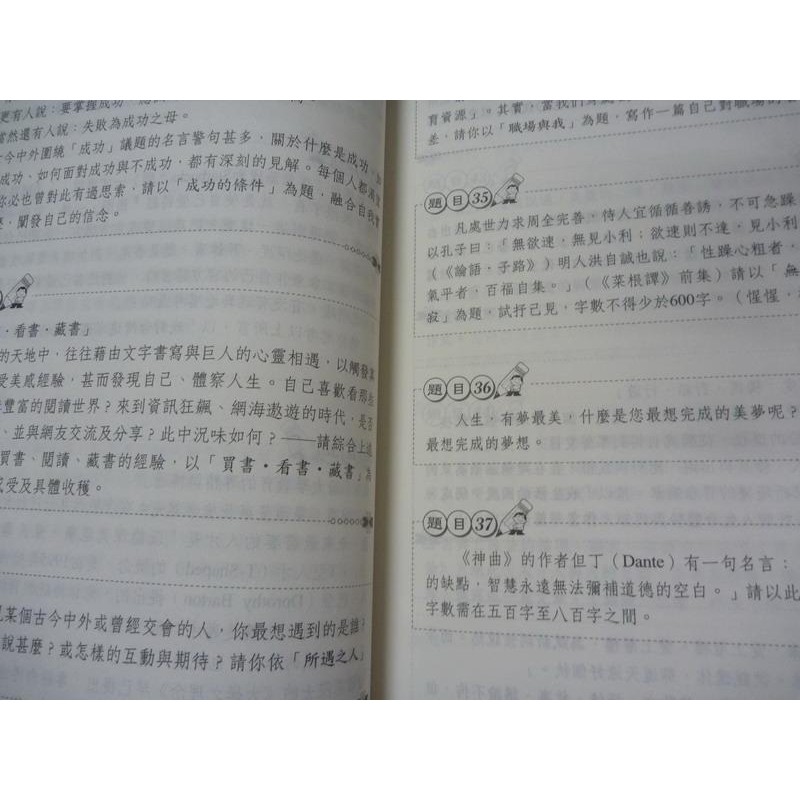 更有人說：要掌握成功
當然還有人說：失敗為成功之母。
今中外圍繞「成功」議題的名言警句甚多，關於什麼是成功、如
成功、如何面對成功與不成功，都有深刻的見解。每個人都渴望
你必也曾對此有過思索，請以「成功的條件」為題，融合自我實
，闡發自己的信念。
・看書・藏書」
的天地中，往往藉由文字書寫與巨人的心靈相遇，以觸發其
受美感經驗，甚而發現自己、體察人生。自己喜歡看那些
豐富的閱讀世界？來到資訊狂飆、網海遨遊的時代，是否
、並與網友交流及分享？此中況味如何？——請綜合上述
買書、閱讀、藏書的經驗，以「買書・看書・藏書」為
感受及具體收穫。
某個古今中外或曾經交會的人，你最想遇到的是誰？
說甚麼？或怎樣的互動與期待？請你依「所遇之人」
育資源」。其實，當我們
差，請你以「職場與我」為題，寫作一篇自己對職場的
題目35
凡處世力求周全完善，待人宜循循善誘，不可急躁
以孔子曰：「無欲速，無見小利；欲速則不達，見小利
（《論語・子路》）明人洪自誠也說：「性躁心粗者，
氣平者，百福自集。」（《菜根譚》前集）請以「
寂」為題，試抒己見，字數不得少於600字。（惺惺，
題目36
人生，有夢最美，什麼是您最想完成的美夢呢？
最想完成的夢想。
題目37
《神曲》的作者但丁（Dante）有一句名言：
的缺點，智慧永遠無法彌補道德的空白。」請以此
字數需在五百字至八百字之間。